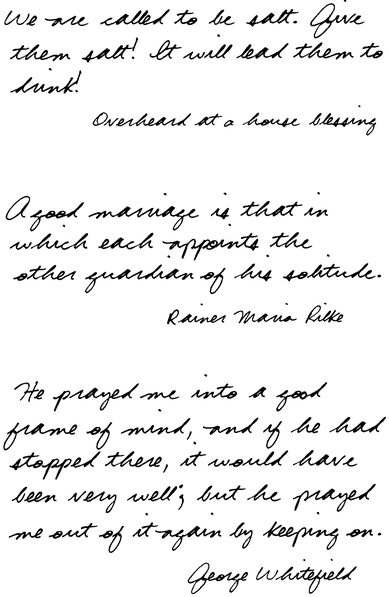 We are called to be salt. Give
them salt! It will lead them to
drink!
Overheard at a house blessing
A good marriage is that in
which each appoints the
other guardian of his solitude.
Rainer Maria Rilke
He prayed me into a good
frame of mind, and if he had
stopped there, it would have
been very well; but he prayed
me out of it again by keeping on.
George Whitefield